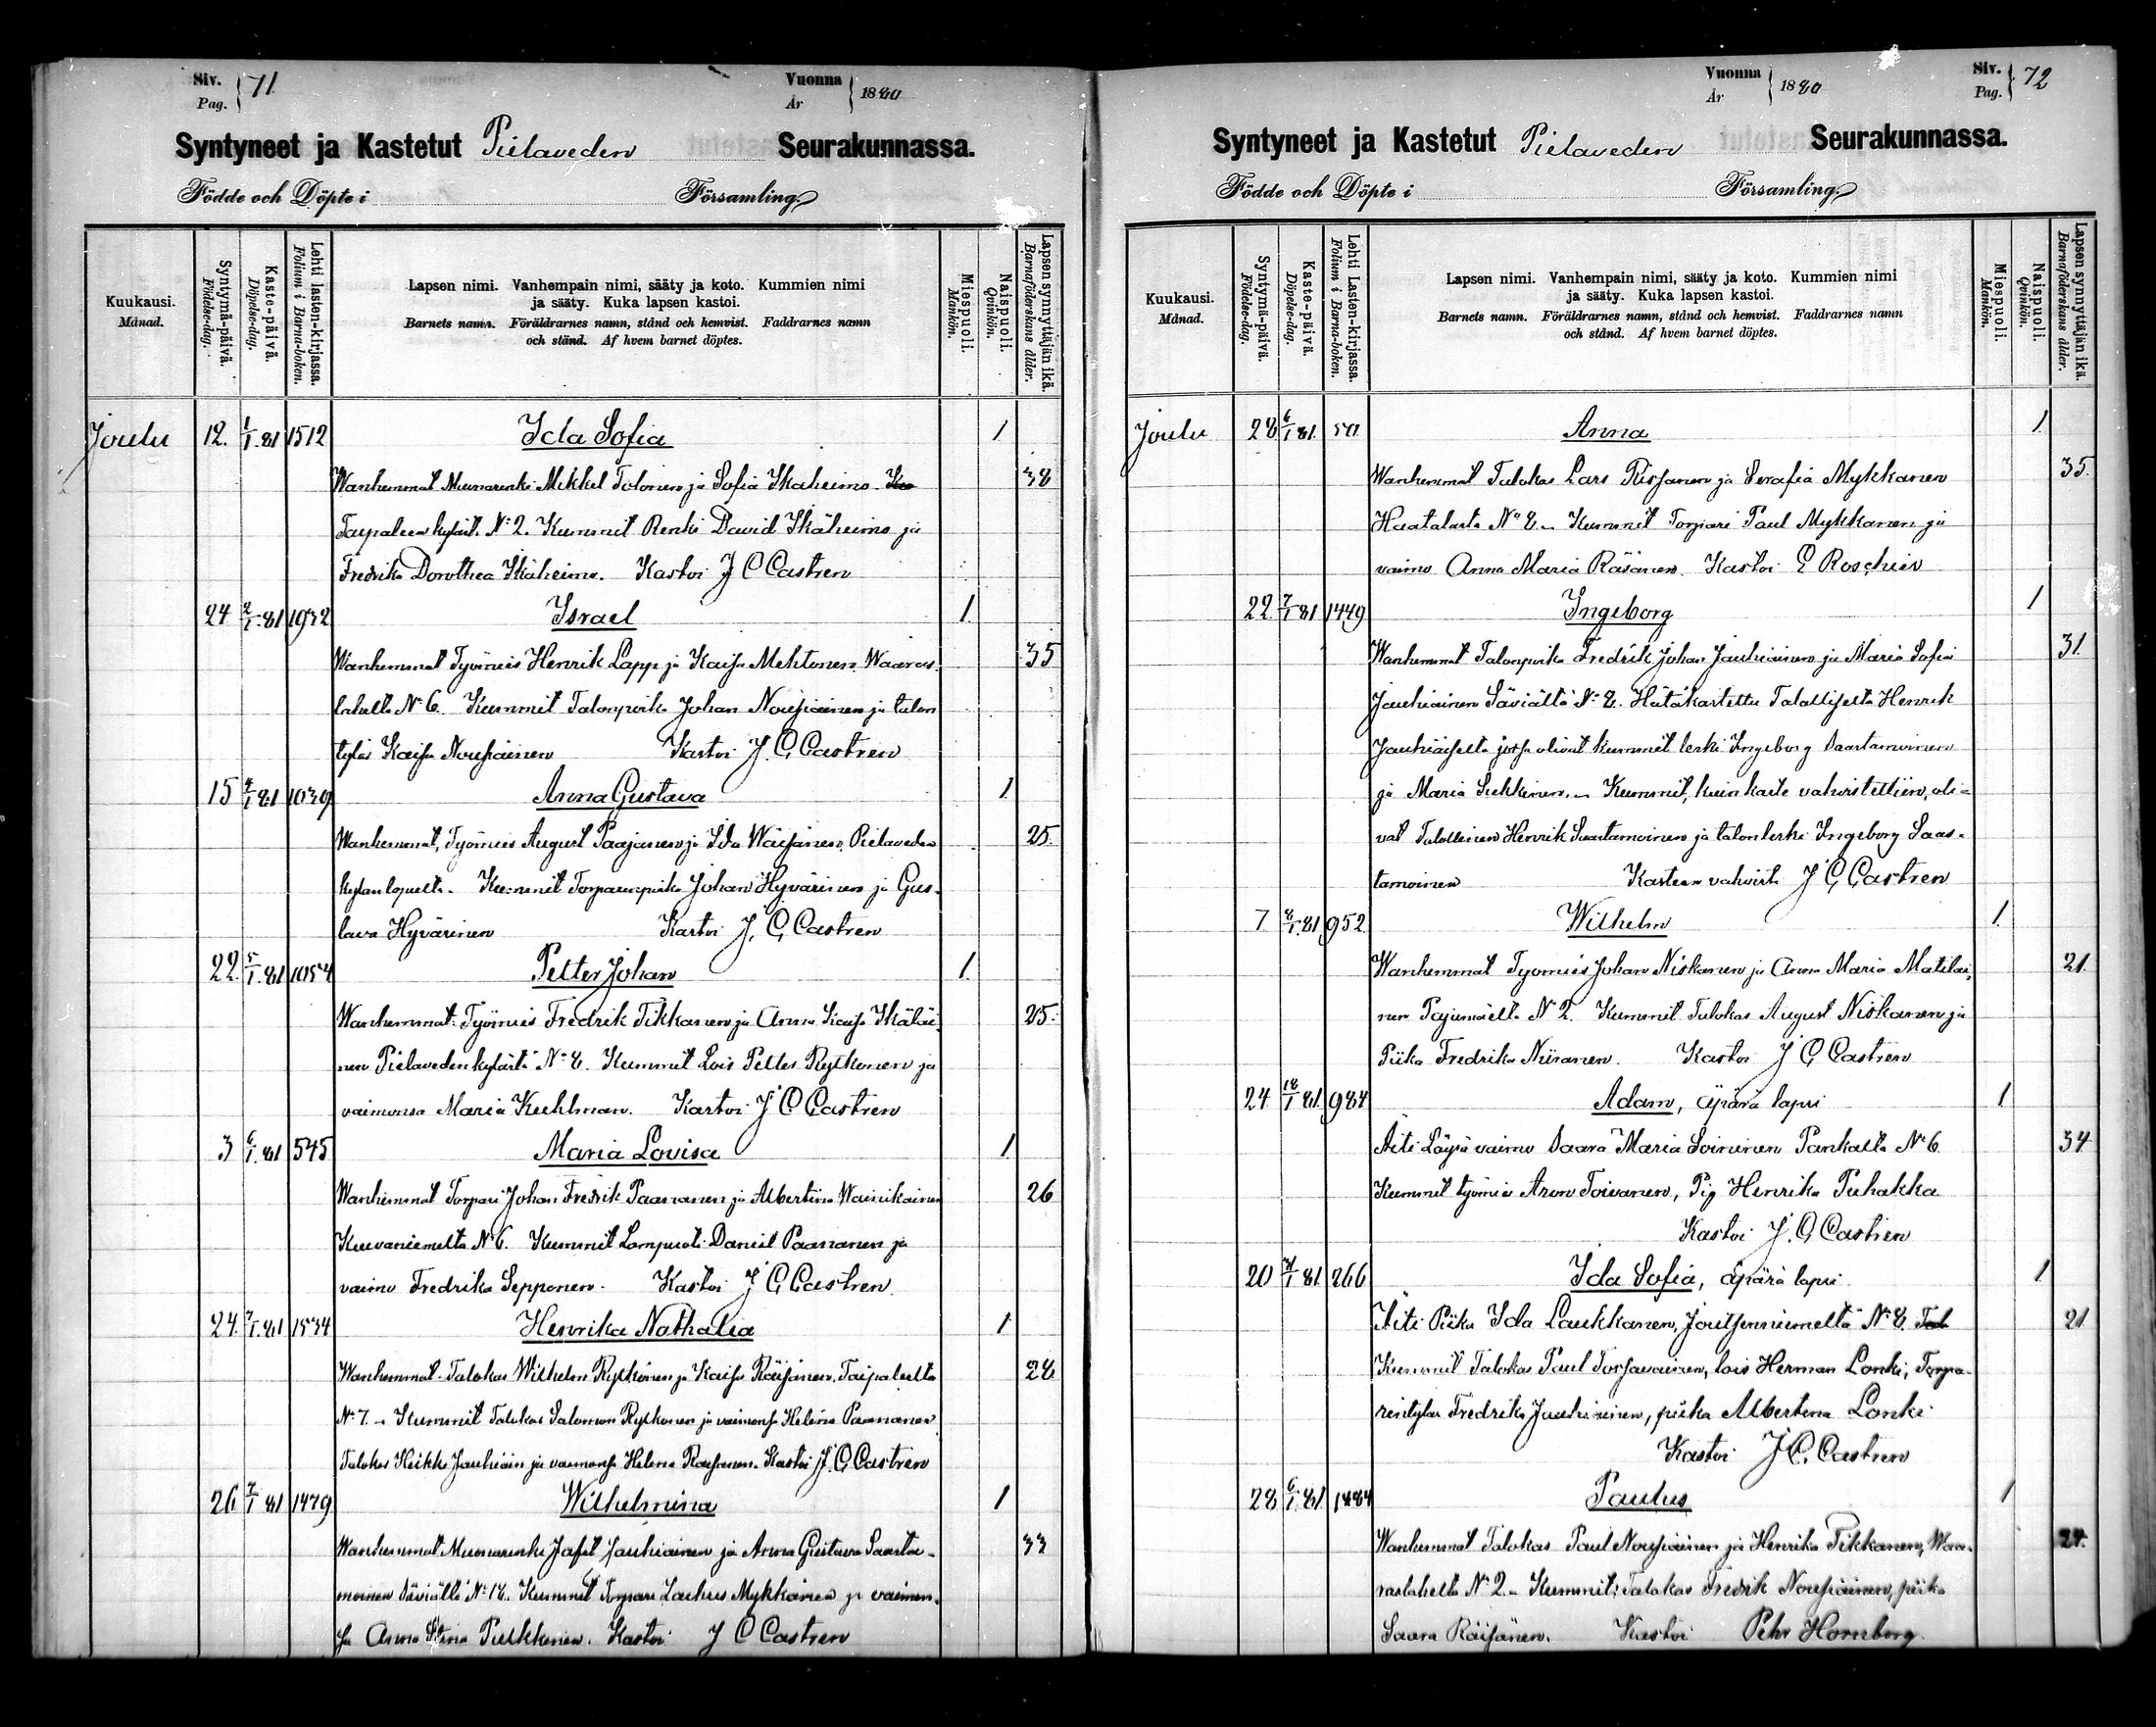 Siv. Pag. 71 Vuonna År 1880
Syntyneet ja Kastetut Pielaveden Seurakunnassa.
Födde och Döpte i Församling.
Kuukausi. Månad. Syntymä-päivä. Födelse-dag. Kaste-päivä. Döpelse-dag. Lehti lasten-kirjassa. Folium i Barna-boken. Lapsen nimi. Vanhempain nimi, sääty ja koto. Kummien nimi ja sääty. Kuka lapsen kastoi. Barnets namn. Föräldrarnes namn, stånd och hemvist. Faddrarnes namn och stånd. Af hvem barnet döptes. Miespuoli. Mankön. Naispuoli. Qvinkön. Lapsen synnyttäjän ikä. Barnaföderskans ålder.
Joulu 12. 1/1.81 1512 Ida Sofia 1
Wanhemmat Muonarenki Mikkel Tolonen ja Sofia Ikäheimo 38
Taipaleen kylästä N:o 2. Kummit Renki David Ikäheimo ja
Fredrika Dorothea Ikäheimo. Kastoi J C Castren
24 2/1.81 1932 Israel 1.
Wanhemmat Työmies Henrik Lapp ja Kaisa Mehtonen Waaras- 35
lahelta N:o 6. Kummit Talonpoika Johan Nousiainen ja talon
tytär Kaisa Nousiainen Kastoi J. C Castren
15 4/1 81 1039 Anna Gustava 1
Wanhemmat, Työmies August Paajanen ja Ida Wäisänen Pielaveden 25.
kylän lopulta. Kummit Torpanpoika Johan Hyvärinen ja Gus-
tava Hyvärinen Kastoi J. C Castren
22. 5/1.81 1054 Petter Johan 1.
Wanhemmat: Työmies Fredrik Tikkanen ja Anna Kaisa Ikäläi- 25.
nen Pielaveden kylästä N:o 8. Kummit Lois Petter Rytkönen ja
vaimonsa Maria Kuhlman. Kastoi J C Castren
3 6/1.81 545 Maria Lovisa 1
Wanhemmat Torpari Johan Fredrik Paananen ja Albertina Wainikainen 26
Kuivaniemeltä N:o 6. Kummit Lampuoti Daniel Paananen ja
vaimo Fredrika Sepponen. Kastoi J C Castren
24. 7/1.81 1534 Henrika Nathalia 1
Wanhemmat Talokas Wilhelm Rytkönen ja Kaisa Räisänen, Taipaleelta 28
N:o 7. Kummit Talokas Salomon Rytkönen ja vaimonsa Helena Paananen
Talokas Heikki Jauhiain ja vaimonsa Helena Räisänen. Kastoi J. C Castren
26 7/1 81 1479 Wilhelmina 1
Wanhemmat Muonarenki Jafet Jauhiainen ja Anna Gustava Saasta- 33
moinen Säviältä N:o 18. Kummit Torpari Zachris Mykkänen ja vaimon-
sa Anna Stina Pulkkinen. Kastoi J C Castren
Vuonna År 1880 Siv. Pag. 72
Syntyneet ja Kastetut Pielaveden Seurakunnassa.
Födde och Döpte i Församling.
Kuukausi. Månad. Syntymä-päivä. Födelse-dag. Kaste-päivä. Döpelse-dag. Lehti Lasten-kirjassa. Folium i Barna-boken. Lapsen nimi. Vanhempain nimi, sääty ja koto. Kummien nimi ja sääty. Kuka lapsen kastoi. Barnets namn. Föräldrarnes namn, stånd och hemvist. Faddrarnes namn och stånd. Af hvem barnet döptes. Miespuoli. Mankön. Naispuoli. Qvinkön. Lapsen synnyttäjän ikä. Barnaföderskans ålder.
Joulu 28 6/1 81. Anna 1.
Wanhemmat Talokas Lars Rissanen ja Serafia Mykkänen 35.
Haatalasta N:o 8. Kummit Torpari Paul Mykkänen ja
vaimo Anna Maria Räsänen. Kastoi E Roschier
22. 7/1 81 1449 Ingeborg 1
Wanhemmat Talonpoika Fredrik Johan Jauhiainen ja Maria Sofia 31.
Jauhiainen Säviältä N:o 8. Hätäkastettu Talolliselta Henrik
Jauhiaiselta jossa olivat kummit leski Ingeborg Saastamoinen
ja Maria. Kummit, kuin kaste vahvistettiin, oli-
vat Talollinen Henrik Saastamoinen ja talonleski Ingeborg Saas-
tamoinen Kasteen vahvisti J C Castren
7 8/1.81 952 Wilhelm 1.
Wanhemmat Työmies Johan Niskanen ja Anna Maria Matilai- 21.
nen Pajumäeltä N:o 2. Kummit Talokas August Niskanen ja
Piika Fredrika Niiranen. Kastoi J C Castren
24. 18/1 81. 984 Adam, äpärä lapsi 1.
Äiti Löysä vaimo Saara Maria Soininen Pankalta N:o 6 34
Kummit työmies Aron Toivanen, Pig Henrika Puhakka
Kastoi J. C Castren
20 81. 266 Ida Sofia, äpärä lapsi 1
Äiti Piika Ida Laukkanen, Joutsenniemeltä N:o 8. 21
Kummit Talokas Paul Torsavainen, lois Herman Lonki, Torpa-
rintytär Fredrika Jauhiainen, piika Albertina Lonki
Kastoi J C. Castren
28 6/1.81. 1484 Paulus 1
Wanhemmat Talokas Paul Nousiainen ja Henrika Tikkanen, Waa- 24.
raslahelta N:o 2. Kummit: Talokas Fredrik Nousiainen, piika
Saara Räisänen. Kastoi Pehr Hornborg.